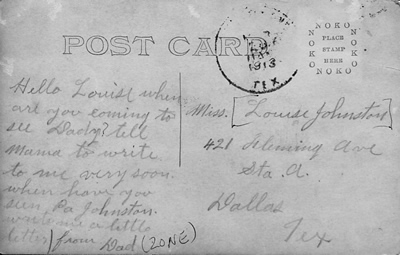 POST CARD
1913
TEX
NOKO
NOKO
PLACE
STAMP
HERE
NOKO
NOKO
Hello Louise when
are you coming to
see Dady? tell
Mama to write
to me very soon.
when have you
seen Pa Johnston.
write me a little
letter) from Dad (ZONE)
Miss. [Louise Johnston]
421 Fleming Ave
Sta. A.
Dallas
Tex